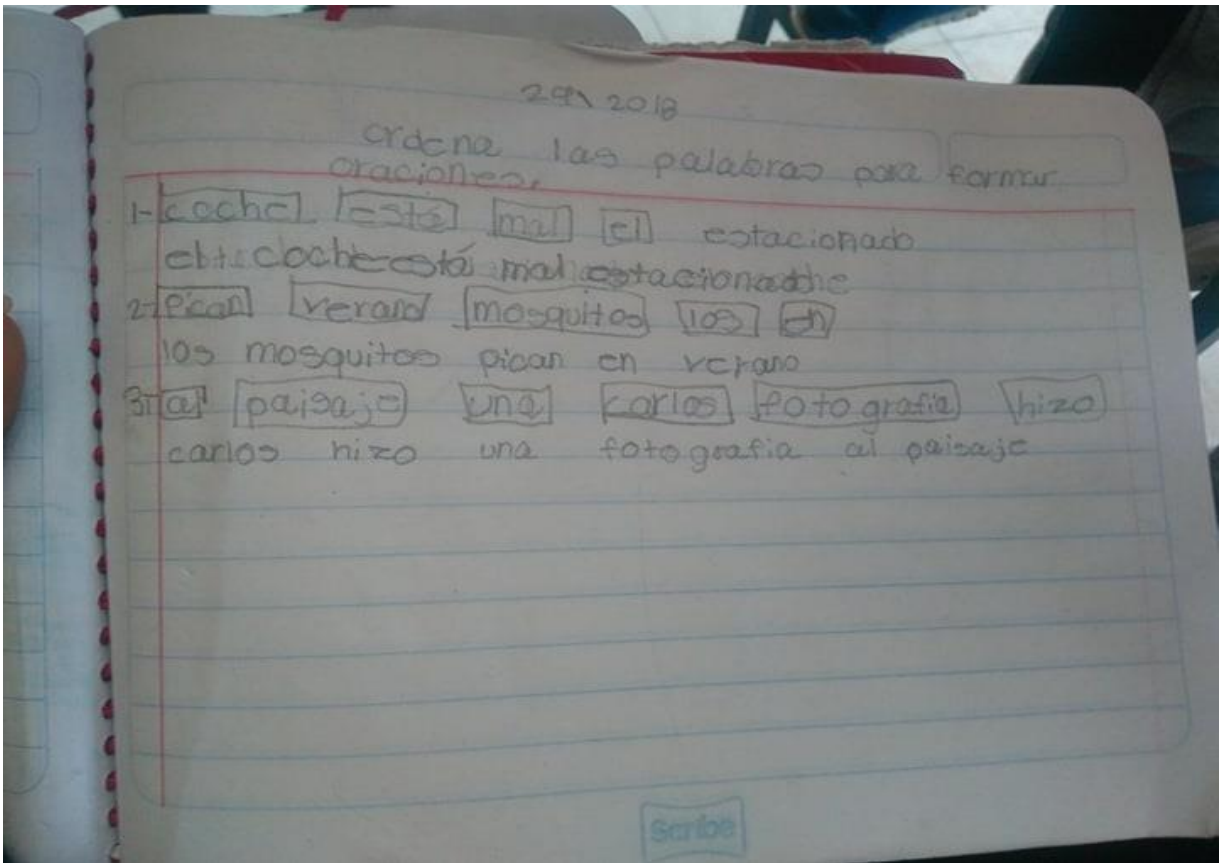 2018
ordena las palabras para formar
oraciones.
1- coche está mal el estacionado
coche está mal
2- Pican verano mosquitos los en
los mosquitos pican en verano
3- al paisaje una carlos fotografia hizo
carlos hizo una fotografia al paisaje
Scribe